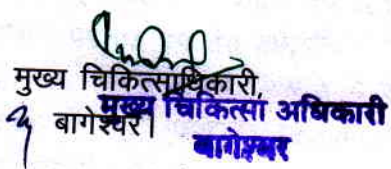 मुख्य चिकित्साधिकारी,
बागेश्वर।
मुख्य चिकित्सा अधिकारी
बागेश्वर